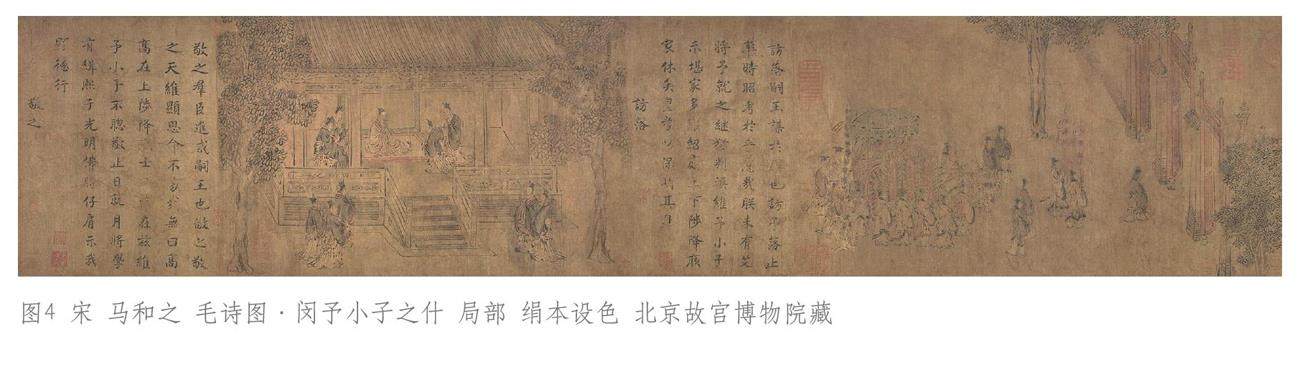 訪落嗣王謀於也訪予落止
率時昭考於乎悠哉朕未有艾
將予就之繼猶判渙維予小子
未堪家多紹庭上下陟降厥
家休矣皇考以保明其身
訪落
敬之羣臣進戒嗣王也敬之敬
之天維顯思命不易哉無曰高
高在上陟降士在兹維
予小子不聰敬止日就月將學
有緝熙于光明佛時仔肩示我
顯德行
敬之
图4 宋 马和之 毛诗图·闵予小子之什 局部 绢本设色 北京故宫博物院藏